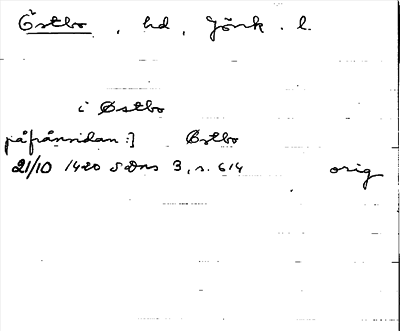 Östbo, hd, Jönk. l.
i Østbo
på frånsidan:] Østbo
21/10 1420 SDns 3, s. 614 orig